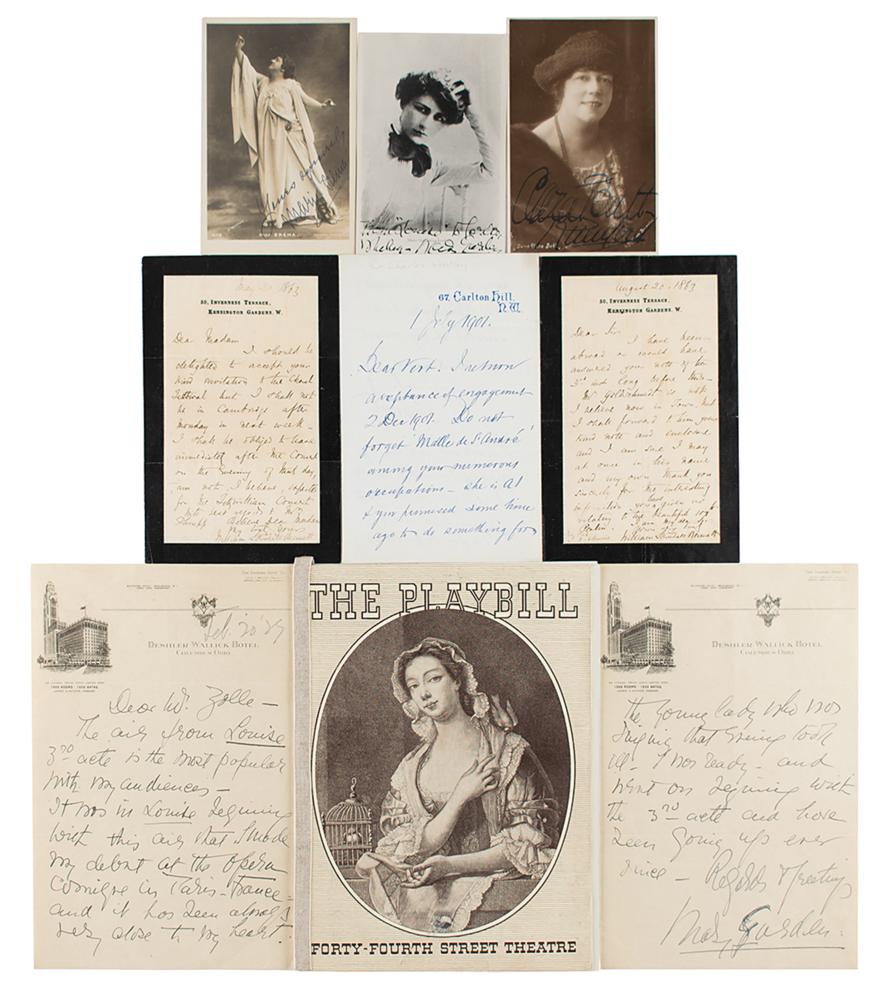 Yours sincerely
BREMA
Mary Garden
Clara Butt
50, INVERNESS TERRACE,
KENSINGTON GARDENS, W.
May 20 1863
Dear Madam
I should be
delighted to accept your
kind invitation to the Choral
Festival but I shall not
be in Cambridge after
Monday in next week –
I shall be obliged to leave
immediately after the Concert
on the Evening of that day,
am not, I believe, expected
for the Fitzwilliam Concert
With best regards to Mr
Believe dear Madam
William Sterndale Bennett
67, Carlton Hill,
N.W.
1 July 1901.
Dear Vert. I return
acceptance of engagement
2 Dec 1901. Do not
forget 'Mlle de St. André'
among your numerous
occupations – she is A1
& you promised some time
ago to do something for
August 20. 1863
50, INVERNESS TERRACE,
KENSINGTON GARDENS, W.
Dear Sir
I have been
abroad or would have
answered your note of the
3rd inst long before this –
Mr Goldschmidt is not
I believe now in Town, but
I shall forward to him your
kind note and enclosure
and I am sure I may
at once in his name
and my own thank you
sincerely for the interesting
information you give us
relating to the beautiful
William Sterndale Bennett
DESHLER-WALLICK HOTEL
COLUMBUS, OHIO
1000 ROOMS - 1000 BATHS
Feb. 20 '29
Dear Mr. Zolle –
The airs from Louise
3rd acte is the most popular
with my audiences –
It was in Louise beginning
with this airs that I made
my debut at the Opera
Comique in Paris – France –
and it has been always
very close to my heart.
THE PLAYBILL
FORTY-FOURTH STREET THEATRE
DESHLER-WALLICK HOTEL
COLUMBUS, OHIO
1000 ROOMS - 1000 BATHS
the young lady who was
singing that evening took
ill – I was ready – and
went on beginning with
the 3rd acte and have
been going up ever
since – Regards & greetings
Mary Garden.